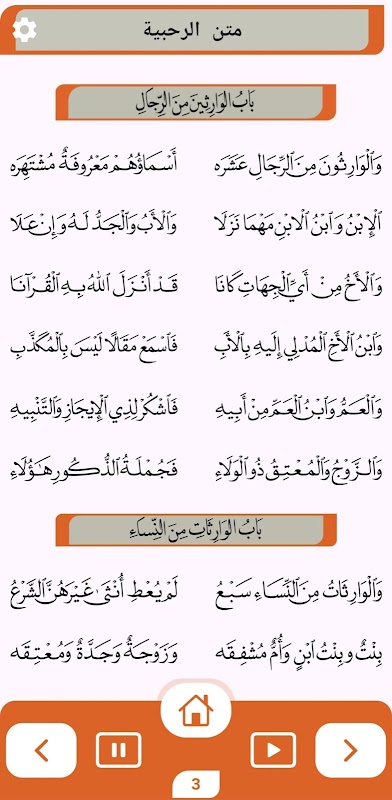 متن الرحبية
بَابُ الوَارِثِينَ مِنَ الرِّجَالِ
وَالْوَارِثُونَ مِنَ الرِّجَالِ عَشَرَه أَسْمَاؤُهُمْ مَعْرُوفَةٌ مُشْتَهِرَه
الْإِبْنُ وَابْنُ الْابْنِ مَهْمَا نَزَلَا وَالْأَبُ وَالْجَدُّ لَهُ وَإِنْ عَلَا
وَالْأَخُ مِنْ أَيِّ الْجِهَاتِ كَانَا قَدْ أَنْزَلَ اللهُ بِهِ الْقُرْآنَا
وَابْنُ الْأَخِ الْمُدْلِي إِلَيهِ بِالْأَبِ فَاسْمَعْ مَقَالًا لَيْسَ بِالْمُكَذَّبِ
وَالْعَمُّ وَابْنُ الْعَمِّ مِنْ أَبِيهِ فَاشْكُرْ لِذِي الْإِيجَازِ وَالتَّنْبِيهِ
وَالزَّوْجُ وَالْمُعْتِقُ ذُو الْوَلَاءِ فَجُمْلَةُ الذُّكُورِ هَؤُلَاءِ
بَابُ الوَارِثَاتِ مِنَ النِّسَاءِ
وَالْوَارِثَاتُ مِنَ النِّسَاءِ سَبْعُ لَمْ يُعْطِ أُنْثَى غَيْرَهُنَّ الشَّرْعُ
بِنْتٌ وبِنْتُ ابْنٍ وَأُمٌّ مُشْفِقَه وَزَوْجَةٌ وَجَدَّةٌ وَمُعْتِقَه
3